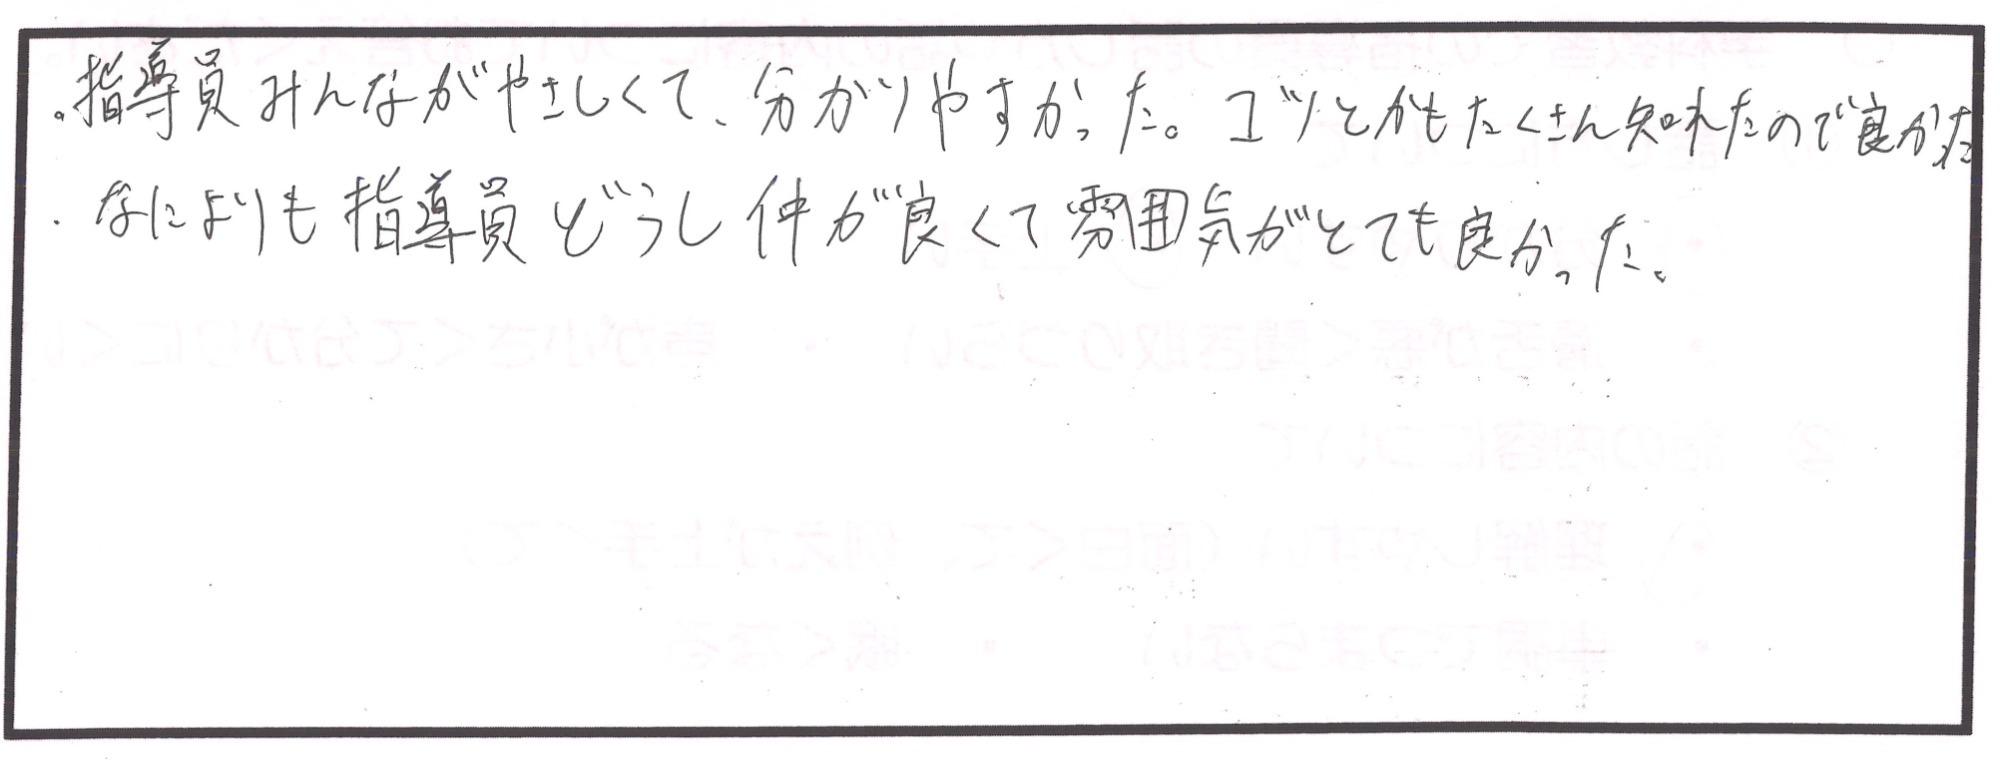 ・指導員みんながやさしくて、分かりやすかった。コツとかもたくさん知れたので良かった
・なによりも指導員どうし仲が良くて雰囲気がとても良かった。